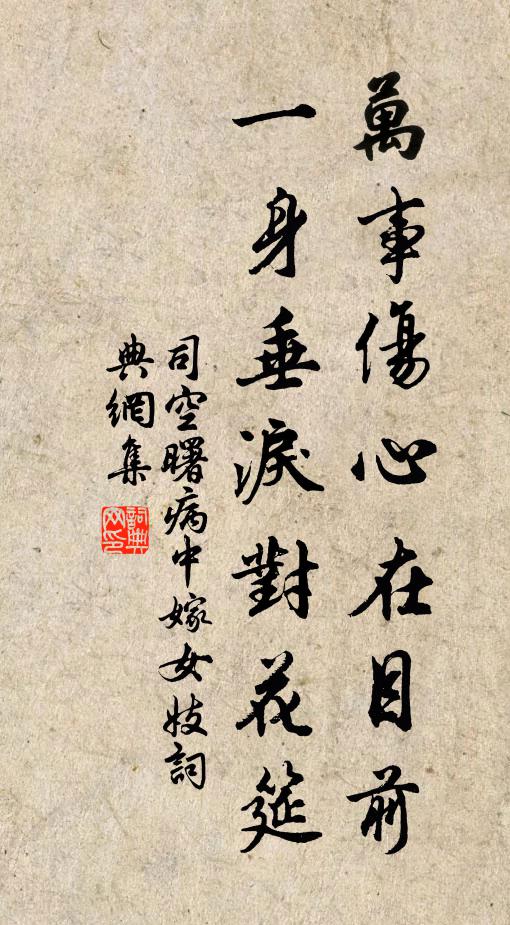 萬事傷心在目前
一身垂淚對花筵
司空曙病中嫁女妓詞
典網集
詞典網印